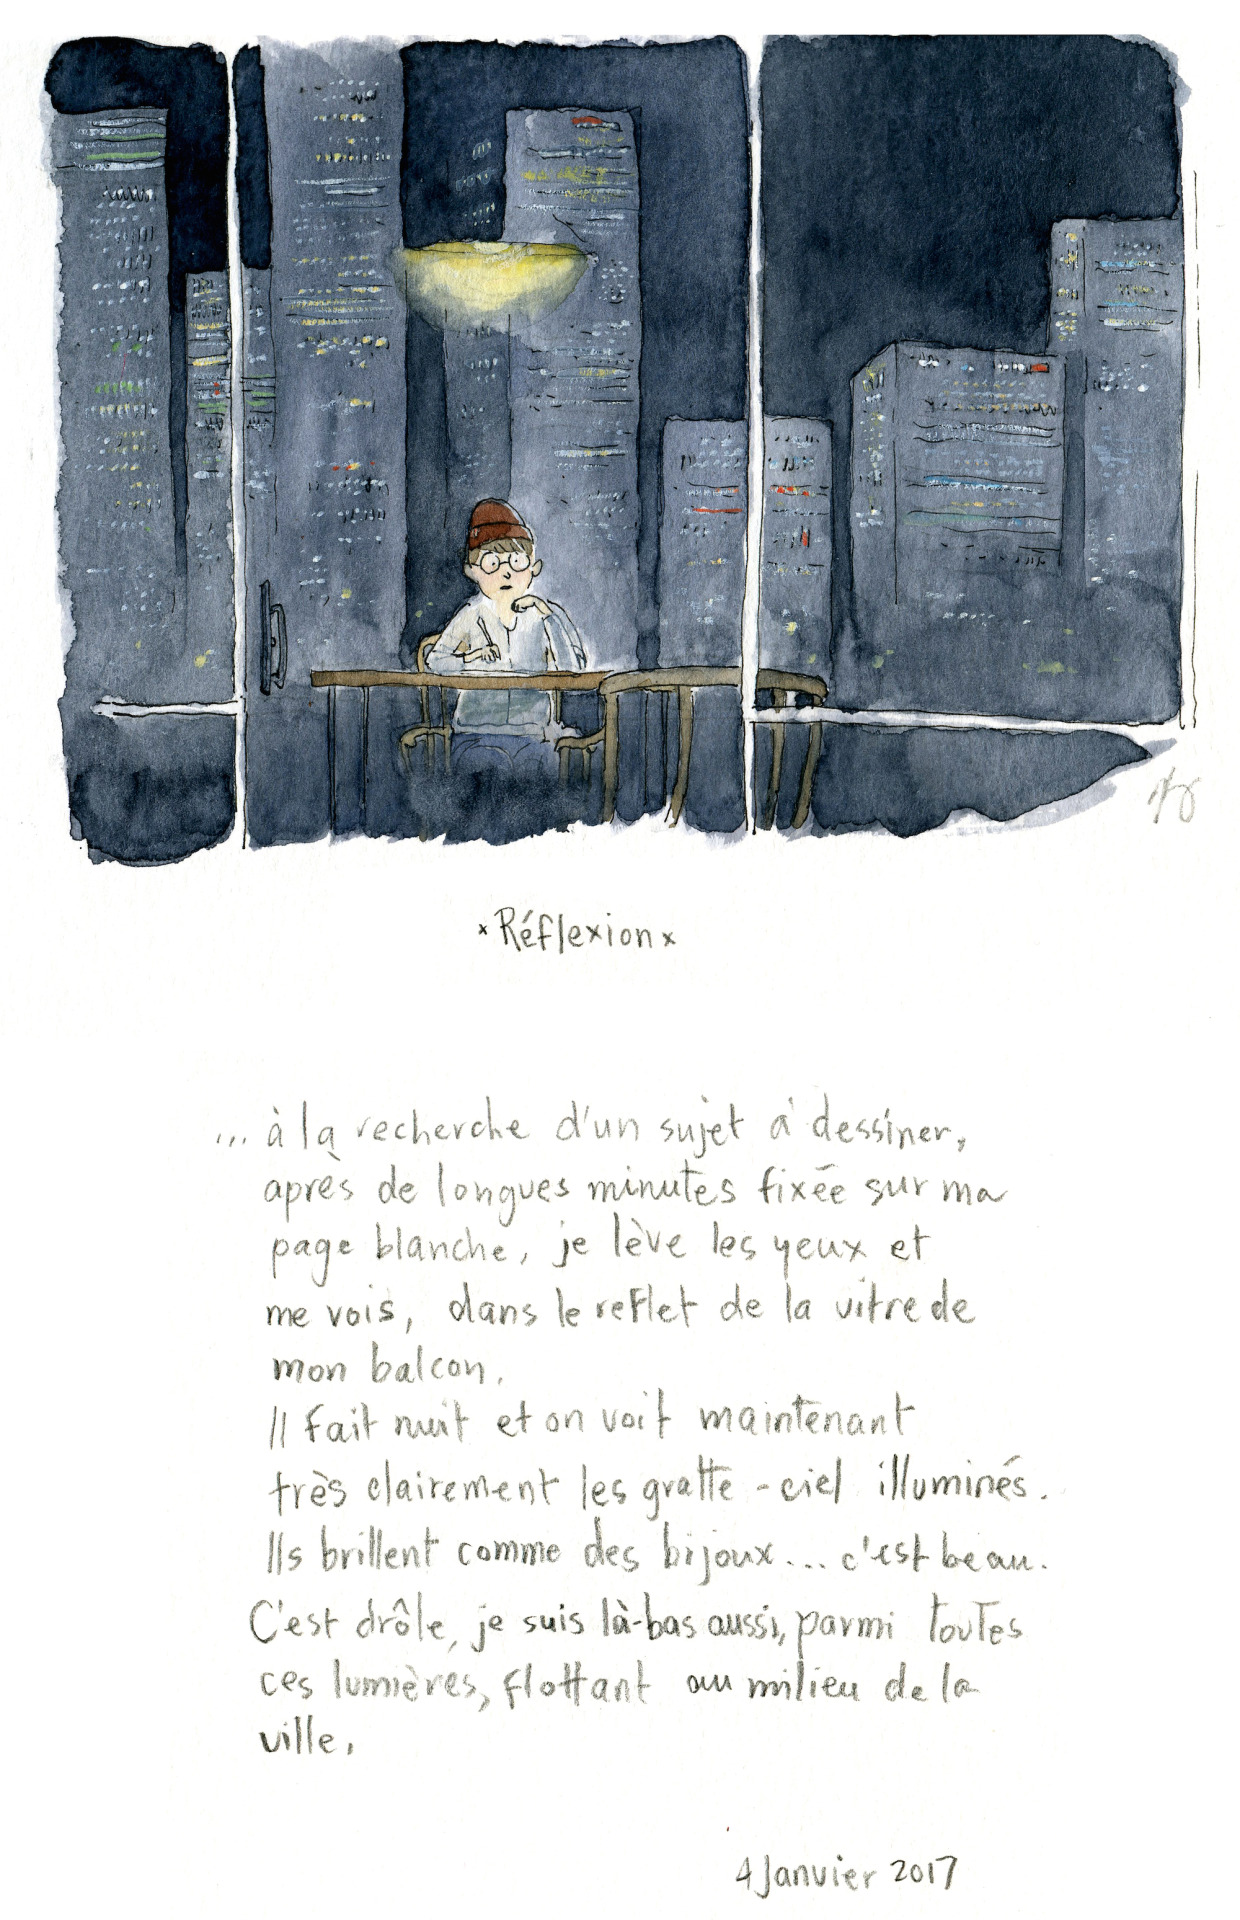 × Réflexion ×
... à la recherche d'un sujet à dessiner,
après de longues minutes fixée sur ma
page blanche, je lève les yeux et
me vois, dans le reflet de la vitre de
mon balcon.
Il fait nuit et on voit maintenant
très clairement les gratte-ciel illuminés.
Ils brillent comme des bijoux... c'est beau.
C'est drôle, je suis là-bas aussi, parmi toutes
ces lumières, flottant au milieu de la
ville.
4 Janvier 2017